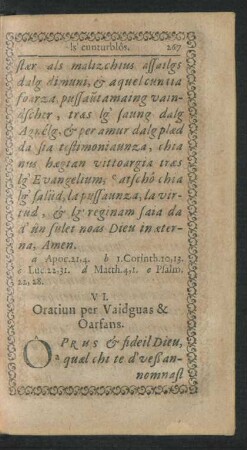 ls conturblôs. 267
stær als malizchius assailgs
dalg dimuni, & aquel cun tia
foarza, pussaûtamaing vain-
dscher, tras lg' saung dalg
Agnêlg. & per amur dalg plæd
da sia testimoniaunza, chia
nus hægian vittoargia træs
lg' Evangelium, & atschô chia
lg' salüd, la pussaunza, la vir-
tüd, & lg' reginam saia da
d'ün sulet noas Dieu in æter-
na, Amen.
a Apoc. 21, 4. b 1. Corinth. 10, 13.
c Luc. 22, 31. d Matth. 4, 1. e Psalm.
22, 28.
VI.
Oratiun per Vaidguas &
Oarfans.
O PRUS & fideil Dieu,
a quæl chi te d' vess an-
nomnast